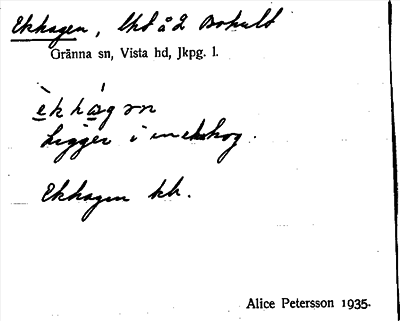 Ekhagen, lht å 2 Bokult
Gränna sn, Vista hd, Jkpg. l.
èkhágɘn
Ligger i en ekskog.
Ekhagen kb.
Alice Petersson 1935.